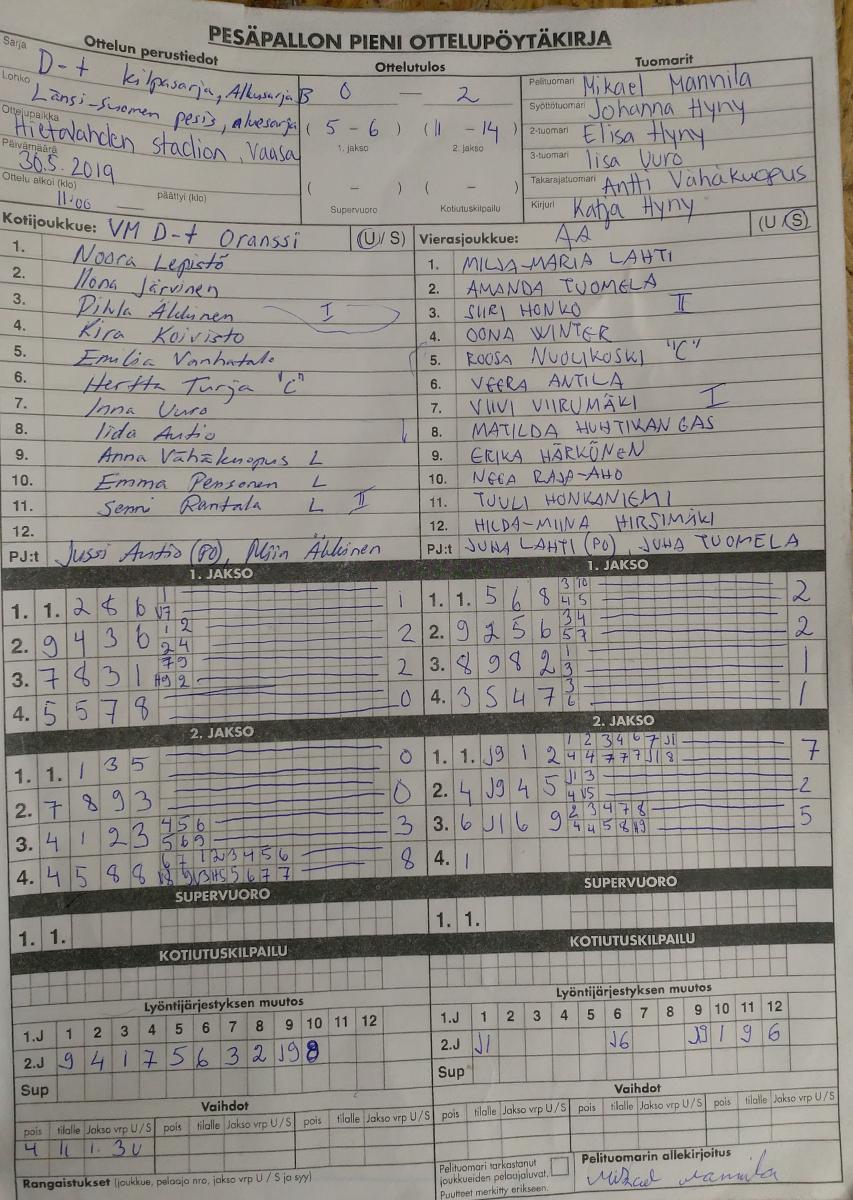 PESÄPALLON PIENI OTTELUPÖYTÄKIRJA
Ottelun perustiedot
Sarja D-t kilpasarja, Alkusarja B
Lohko Länsi-Suomen pesis, aluesarja
Ottelupaikka Hietalahden stadion, Vaasa
Päivämäärä 30.5.2019
Ottelu alkoi (klo) 11.00 päättyi (klo)
Ottelutulos
0 — 2
( 5 - 6 ) ( 11 - 14 )
1. jakso 2. jakso
( - ) ( - )
Supervuoro Kotiutuskilpailu
Tuomarit
Pelituomari Mikael Mannila
Syöttötuomari Johanna Hyny
2-tuomari Elisa Hyny
3-tuomari Iisa Uuro
Takarajatuomari Antti Vähäkuopus
Kirjuri Katja Hyny
Kotijoukkue: VM D-t Oranssi (U/S)
1. Noora Lepistö
2. Ilona Järvinen
3. Pihla Äkkinen I
4. Kira Koivisto
5. Emilia Vanhatalo
6. Hertta Turja "C"
7. Inna Uuro
8. Iida Autio
9. Anna Vähäkuopus L
10. Emma Pensonen L
11. Senni Rantala L II
12.
PJ:t Jussi Autio (PO), Äkkinen
Vierasjoukkue: AA (U/S)
1. MILJA-MARIA LAHTI
2. AMANDA TUOMELA
3. SIIRI HONKO II
4. OONA WINTER
5. ROOSA NUOLIKOSKI "C"
6. VEERA ANTILA
7. VIIVI VIIRUMÄKI I
8. MATILDA HUHTIKANGAS
9. ERIKA HÄRKÖNEN
10. NEEA RAJA-AHO
11. TUULI HONKANIEMI
12. HILDA-MIINA HIRSIMÄKI
PJ:t JUHA LAHTI (PO), JUHA TUOMELA
1. JAKSO
1. 1. 2 8 6 1
2. 9 4 3 6 2
3. 7 8 3 1 2
4. 5 5 7 8 0
2. JAKSO
1. 1. 1 3 5 0
2. 7 8 9 3 0
3. 4 1 2 3 4 5 6 3
5 6 9
4. 4 5 8 8 8
SUPERVUORO
1. 1.
KOTIUTUSKILPAILU
1. JAKSO
1. 1. 5 6 8 3 10 2
4 5
2. 9 2 5 6 3 4 2
5 7
3. 8 9 8 2 1 1
3
4. 3 5 4 7 3 1
6
2. JAKSO
1. 1. J9 1 2 1 2 3 4 6 7 J1 7
4 4 7 7 7 J1 8
2. 4 J9 4 5 J1 3 2
3. 6 J1 6 9 2 3 4 7 8 5
4. 1
SUPERVUORO
1. 1.
KOTIUTUSKILPAILU
Lyöntijärjestyksen muutos
1.J 1 2 3 4 5 6 7 8 9 10 11 12
2.J 9 4 1 7 5 6 3 2 J9 8
Sup
Vaihdot
pois tilalle Jakso vrp U / S pois tilalle Jakso vrp U / S pois tilalle Jakso vrp U / S
4 11 1. 3U
Rangaistukset (joukkue, pelaaja nro, jakso vrp U / S ja syy)
Lyöntijärjestyksen muutos
1.J 1 2 3 4 5 6 7 8 9 10 11 12
2.J J1 J6 J9 1 9 6
Sup
Vaihdot
pois tilalle Jakso vrp U / S pois tilalle Jakso vrp U / S pois tilalle Jakso vrp U / S
Pelituomari tarkastanut joukkueiden pelaajaluvat.
Puutteet merkitty erikseen.
Pelituomarin allekirjoitus
Mikael Mannila